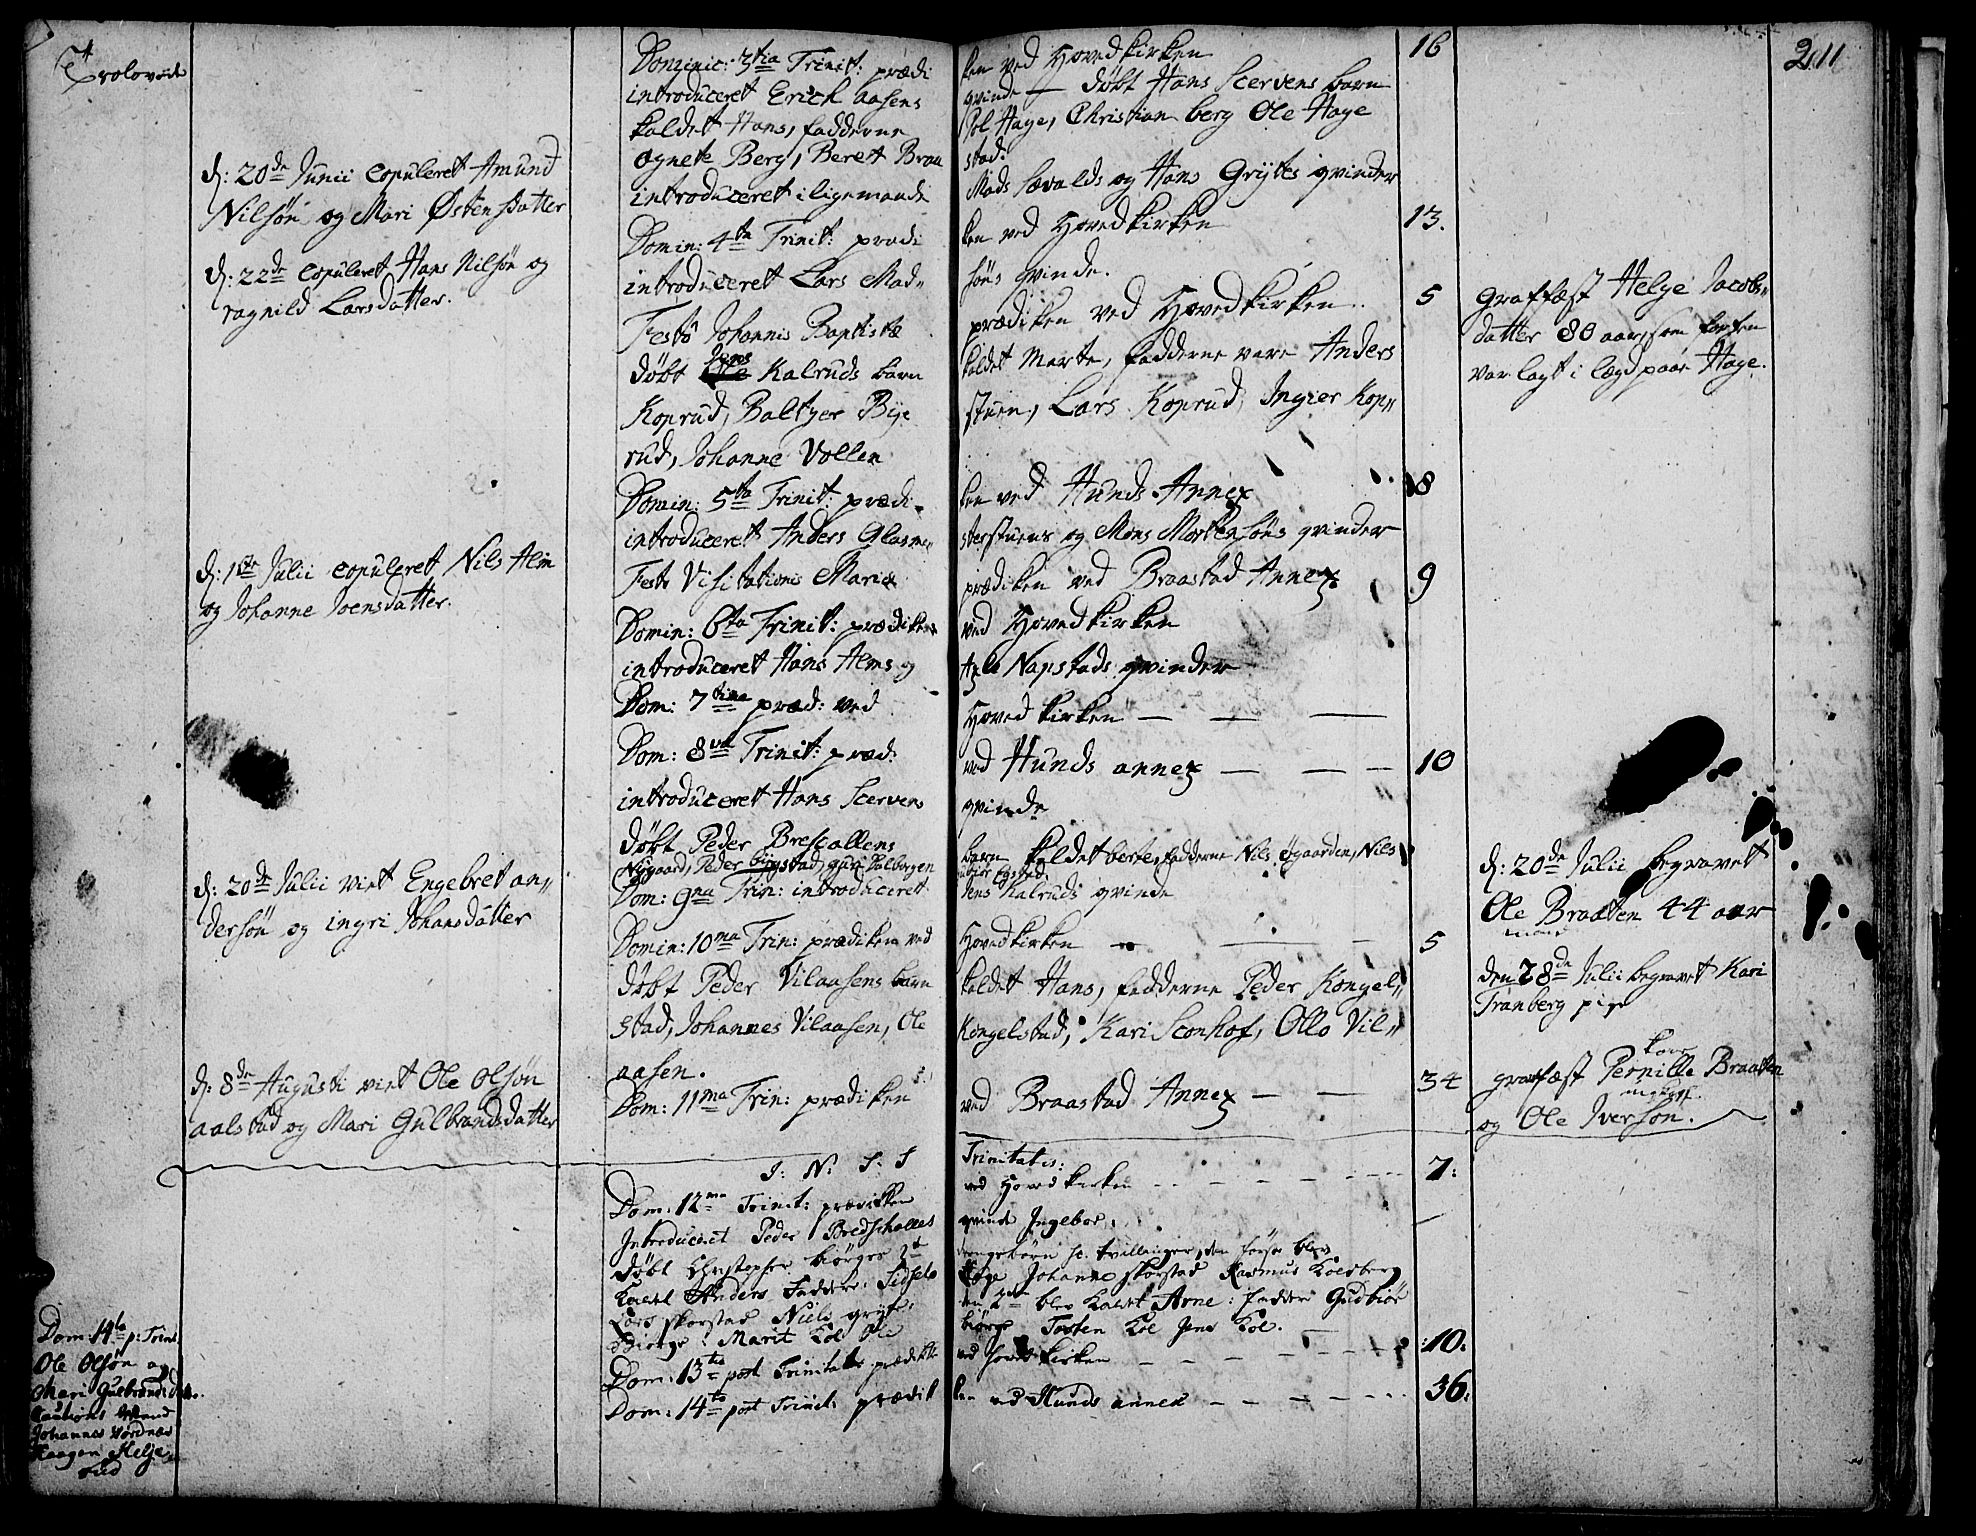 Trolovede
d: 20de Junii copuleret Amund
Nilsøn og Mari Østensdatter
d: 22de copuleret Hans Nilsøn og
ragnild Larsdatter.
d: 1ste Julii copuleret Nils Alm
og Johanne Joensdatter.
d: 20de Julii viet Engebret an„
dersøn og ingri Johansdatter
d: 8de Augusti viet Ole Olsøn
aalstad og Mari Gulbrandsdatter
Dom: 14ta p: Trinit:
Ole Olsøn og
Mari Gulbrands datter.
Cautions Mænd
Johannes Nordnæs
Haagen Helje
rud
Dominic: 3tia Trinit: prædi
introduceret Erich aasens
kaldet Hans, fadderne
ognete Berg, Beret Braa
introduceret iligemaade
Domin: 4ta Trinit: prædi
introduceret Lars Mad„
Festo Johannis Baptistæ
døbt Jens Kalruds barn
Koprud, Baltzer Bye
rud, Johanne Vollen
Domin: 5ta Trinit: prædi„
introduceret Anders Glasme„
Festo Visitationis Mariæ
Domin: 6ta Trinit: prædiken
introduceret Hans Alms og
Dom: 7tima præd: ved
Dom: 8va Trinit: præd:
introduceret Hans Scerven
døbt Peder Brescallens
Nÿgaard, Peder biugstad, guri Dalborgen
Dom: 9na Trin: introduceret
Domin: 10ma Trin: prædiken ved
døbt Peder Vilaasens barn
stad, Johannes Vilaasen, Ole
aasen.
Dom: 11ma Trin: prædiken
J: N: J: J
Dom: 12ma Trinit: prædiken
Introduceret Peder Bredschalles
døbt Christopher biørges 2de
kaldet Anders Fadder: Sidsel
Lars skorstad Niels gryte
Biørge: Marit Kol Ole
Dom: 13tia post Trinitatis prædike
Dom: 14ta post Trinit: prædik
ken ved Hovedkirken
qvinde — døbt Hans Scervens barn
Pol Hage, Christian berg Ole Hage
stad.
Mads Sævalds og Hans Grÿtes qvinder
ken ved Hovedkirken
søns qvinde.
prædiken ved Hovedkirken
kaldet Marte, fadderne vare Anders
stuen, Lars Koprud, Ingier Kop„
ken ved Hunds Annex
sterstuens og Mons Mortensøns qvinder
prædiken ved Braastad Annex
ved Hovedkirken
Axle Napstads qvinder
Hovedkirken — — —
ved Hunds annex — — —
qvinde
barn kaldet berte, fadderne Nils øgaarden, Nils
Jens Kalruds qvinde
Hovedkirken — — —
kaldet Hans, fadderne Peder Kongel„
Kongelstad, Kari Sconhof, Ollo Vil„
ved Braastad Annex — —
Trinitatis:
ved Hoved kirken
qvinde Ingebor.
drengebørn sc. tvillinger, den første blev
Hage Johanne skorstad Rasmus Kolsberg
den 2den blev kaldet Arne: fadder Gudbiør
biørge Torsten Kol Jens Kol.
ved hovedkirken
ken ved Hunds annex
16
13.
5
18
9
10
5
34
7:
:10:
36:
211
Graffæst Helge Jacobs„
datter 80 aar, som forhen
var lagt i lægd paa Hage.
d: 20de Julii begravet
Ole Braaten 44 aar
den 28de Julii begravet Kari
Tranberg pige
graffæst Pernille Braaten
og Ole Iversøn.